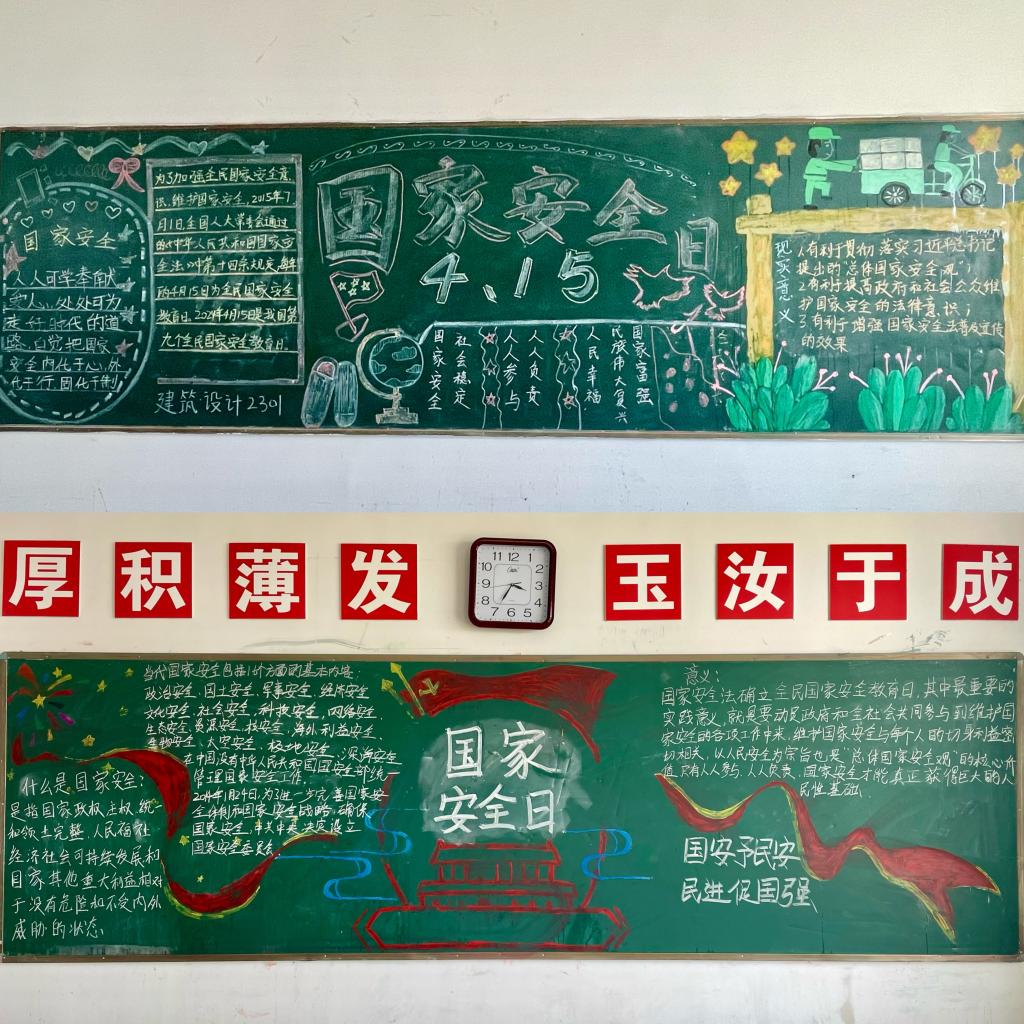 国家安全
人人可学奉献
安全内化于心,外
为了加强全民国家安全意
识,维护国家安全,2015年7
月1日全国人大常委会通过
的《中华人民共和国国家安
全法》中第十四条规定,每年
的4月15日为全民国家安全
教育日。2024年4月15日是我国第
九个全民国家安全教育日。
建筑设计2301
国家安全日
4.15
国家安全
社会稳定
人人参与
人人负责
人民幸福
民族伟大复兴
国家富强
现实意义
1.有利于贯彻落实习近平总书记
提出的"总体国家安全观";
2.有利于提高政府和社会公众维
护国家安全的法律意识;
3.有利于增强国家安全法普及宣传
的效果
厚积薄发
玉汝于成
11 12 1
10 2
9 3
8 4
7 6 5
什么是国家安全:
是指国家政权主权统一
和领土完整、人民福祉
经济社会可持续发展和
国家其他重大利益相对
于没有危险和不受内外
威胁的状态
当代国家安全包括11个方面的基本内容:
政治安全、国土安全、军事安全、经济安全
文化安全、社会安全、科技安全、网络安全、
生态安全、资源安全、核安全、海外利益安全、
生物安全、太空安全、极地安全、深海安全
在中国设有中华人民共和国国家安全部统
管理国家安全工作。
1月24日,为了进一步完善国家安
全体制和国家安全战略,确保
国家安全,中共中央决定设立
国家安全委员会。
国家
安全日
意义:
国家安全法确立全民国家安全教育日,其中最重要的
实践意义,就是要动员政府和全社会共同参与到维护国
家安全的各项工作中来,维护国家安全与每个人的切身利益密
切相关,以人民安全为宗旨也是"总体国家安全观"的核心价
值,只有人人参与、人人负责,国家安全才能真正获得巨大的人
民性基础。
国安予民安
民进促国强